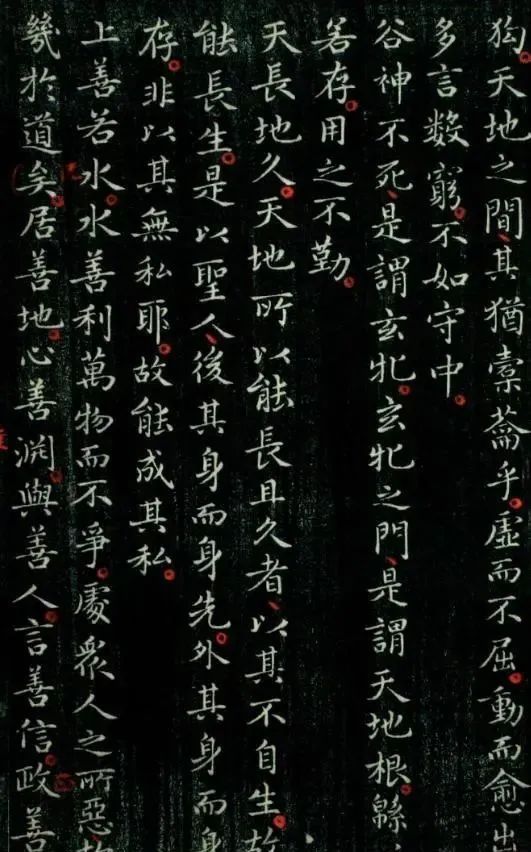 狗。天地之間、其猶橐籥乎。虛而不屈。動而愈出
多言數窮。不如守中。
谷神不死、是謂玄牝。玄牝之門、是謂天地根。緜、
若存。用之不勤。
天長地久。天地所以能長且久者、以其不自生。故
能長生。是以聖人、後其身而身先。外其身而身
存。非以其無私耶。故能成其私。
上善若水。水善利萬物而不爭。處衆人之所惡。故
幾於道矣。居善地。心善渊。與善人。言善信。政善